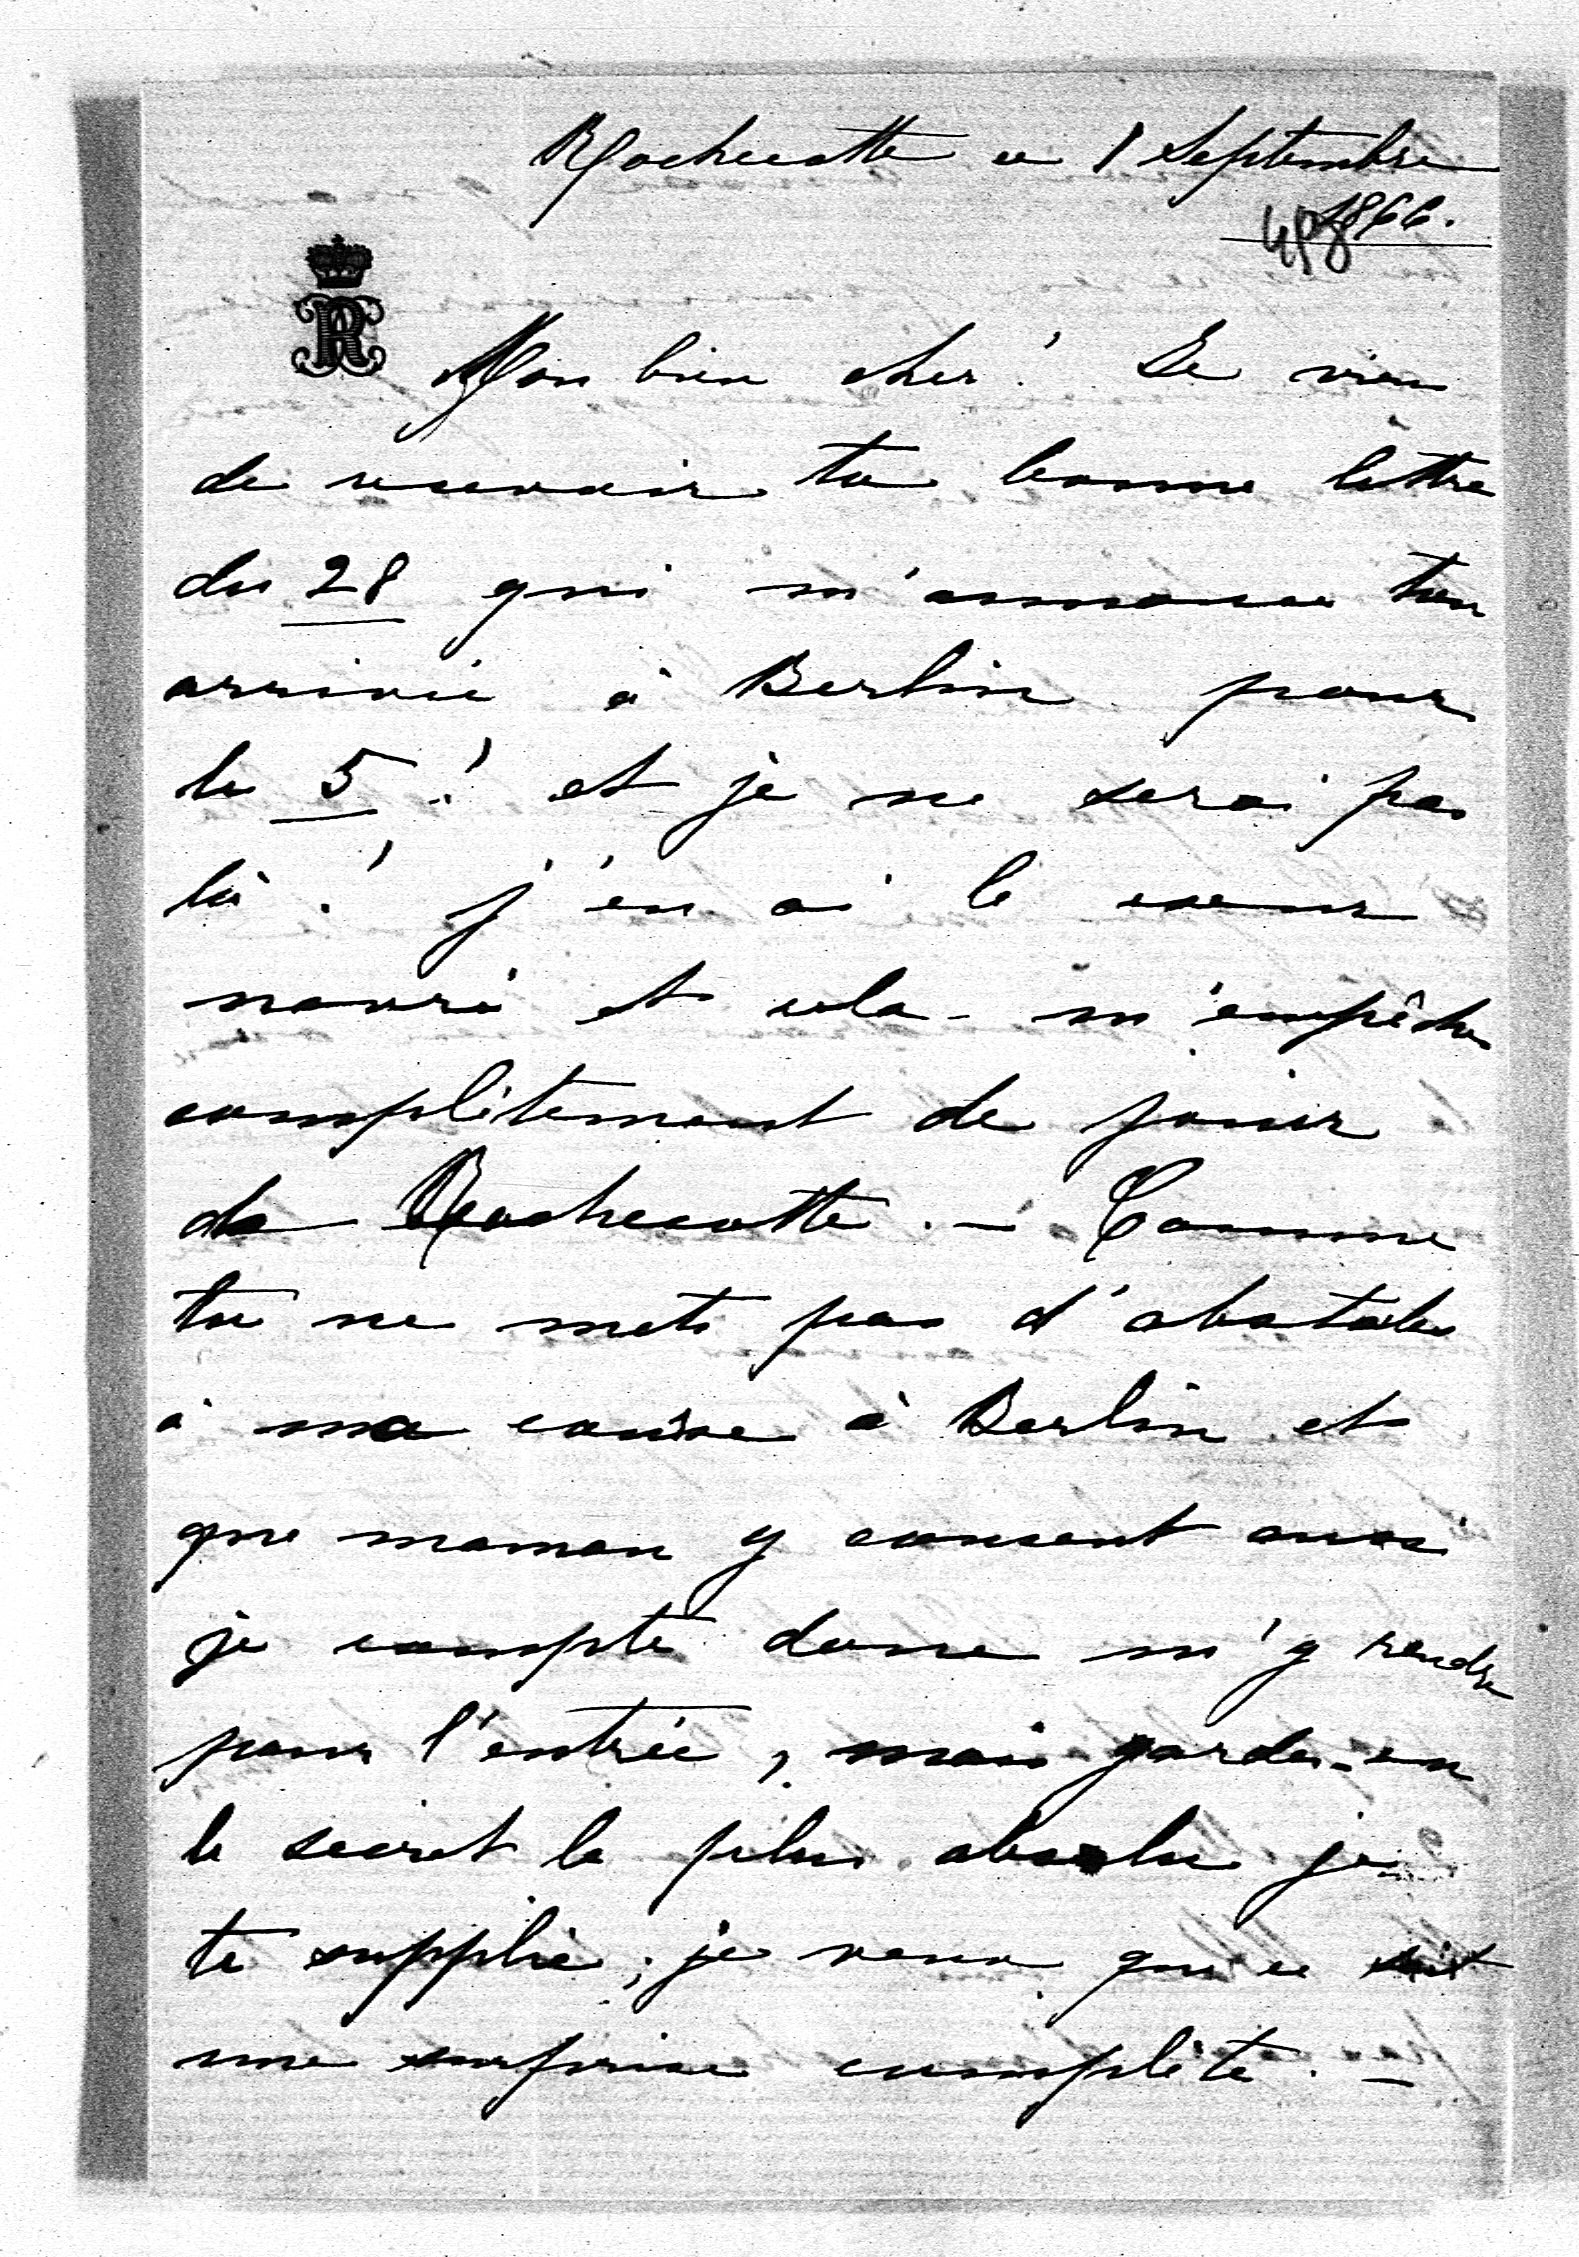 Rochecotte ce 1 Septembre
1866.
498
R
Mon bien cher! Je viens
de recevoir ta bonne lettre
du 28 qui m'annonce ton
arrivée à Berlin pour
le 5! et je ne serai pas
là! j'en ai le coeur
navré et cela m'empêche
complètement de jouir
de Rochecotte. – Comme
tu ne mets pas d'obstacles
à ma course à Berlin et
que maman y consent aussi
je compte donc m'y rendre
pour l'entrée, mais gardes-en
le secret le plus absolu je
te supplie; je veux que ce soit
une surprise complète. –